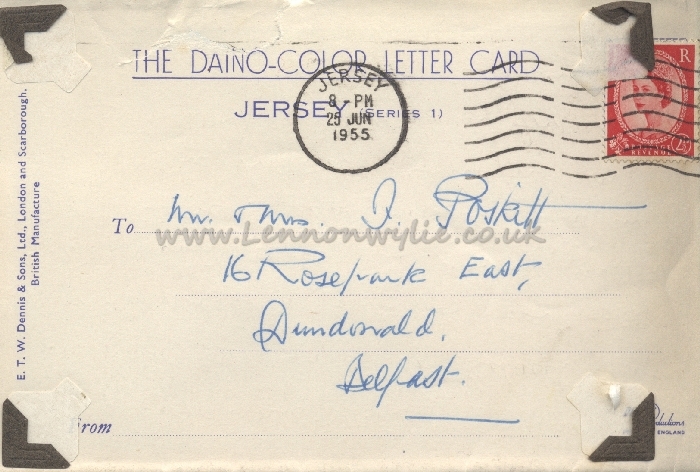 THE DAINO-COLOR LETTER CARD
JERSEY (SERIES 1)
JERSEY
8-PM
29 JUN
1955
R
REVENUE
2½
To Mr. & Mrs. I. Poskitt
www.Lennonwylie.co.uk
16 Rosepark East,
Dundonald,
Belfast.
From
E. T. W. Dennis & Sons, Ltd., London and Scarborough.
British Manufacture
ENGLAND